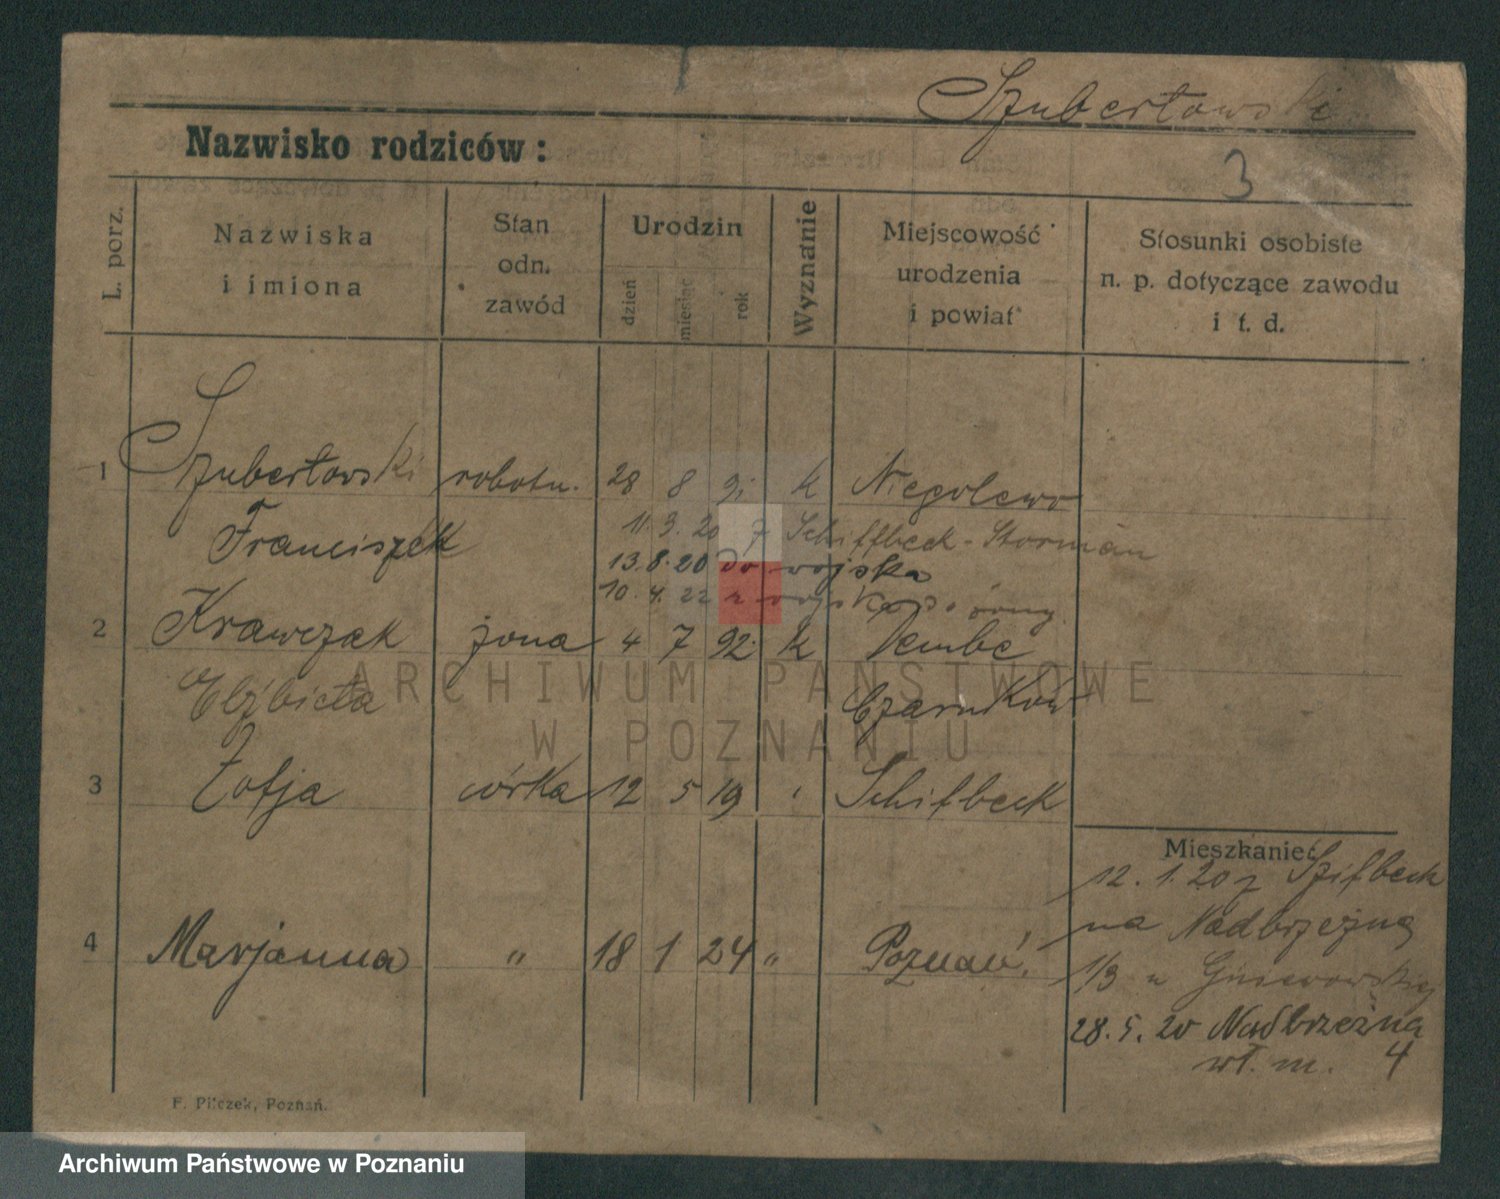 Szubertowski
Nazwisko rodziców:
3
L. porz.
Nazwiska
i imiona
Stan
odn.
zawód
Urodzin
dzień
miesiąc
rok
Wyznanie
Miejscowość
urodzenia
i powiat
Stosunki osobiste
n. p. dotyczące zawodu
i t. d.
1 Szubertowski robotn. 28 8 91 k Niegolewo
11. 3. 20 z Schiffbeck - Storman
Franciszek
13. 8. 20 do wojska
10. 4. 22 z wojska
2 Krawczak żona 4 7 92. k Dembe
Elżbieta Czarnków
3 Zofja córka 12 5 19 Schifbeck
Mieszkanie:
12. 1. 20 z Szifbeck
na Nadbrzeżną
4 Marjanna " 18 1 24 " Poznań.
1/3 u
28. 5. 20 Nadbrzeżna
wł. m. 4
F. Pilczek, Poznań.
ARCHIWUM PAŃSTWOWE
W POZNANIU
Archiwum Państwowe w Poznaniu